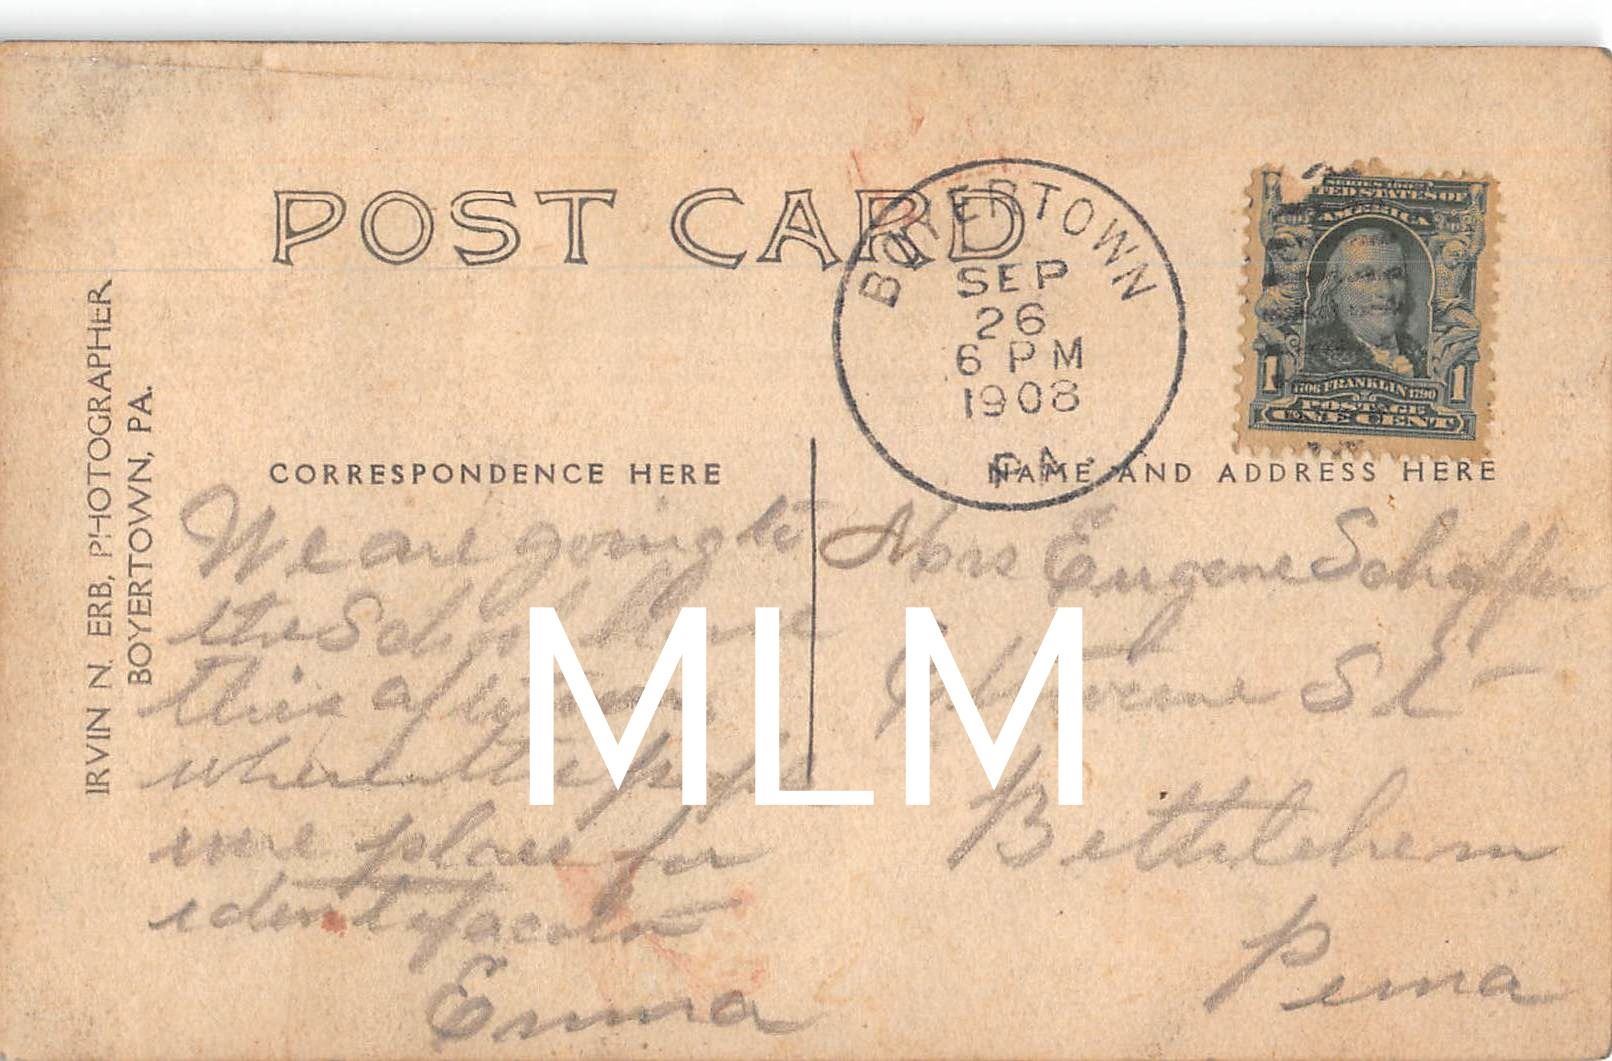 POST CARD
BOYERTOWN
SEP
26
6 PM
1908
PA.
SERIES 1902
UNITED STATES OF
AMERICA
1 1706 FRANKLIN 1790 1
POSTAGE
ONE CENT
IRVIN N. ERB, PHOTOGRAPHER
BOYERTOWN, PA.
CORRESPONDENCE HERE
We are going to
the School House
this afternoon
where the people
were place for
identefacatn
Emma
NAME AND ADDRESS HERE
Mrs Eugene Schaffer
St
Bethlehem
Penna
MLM